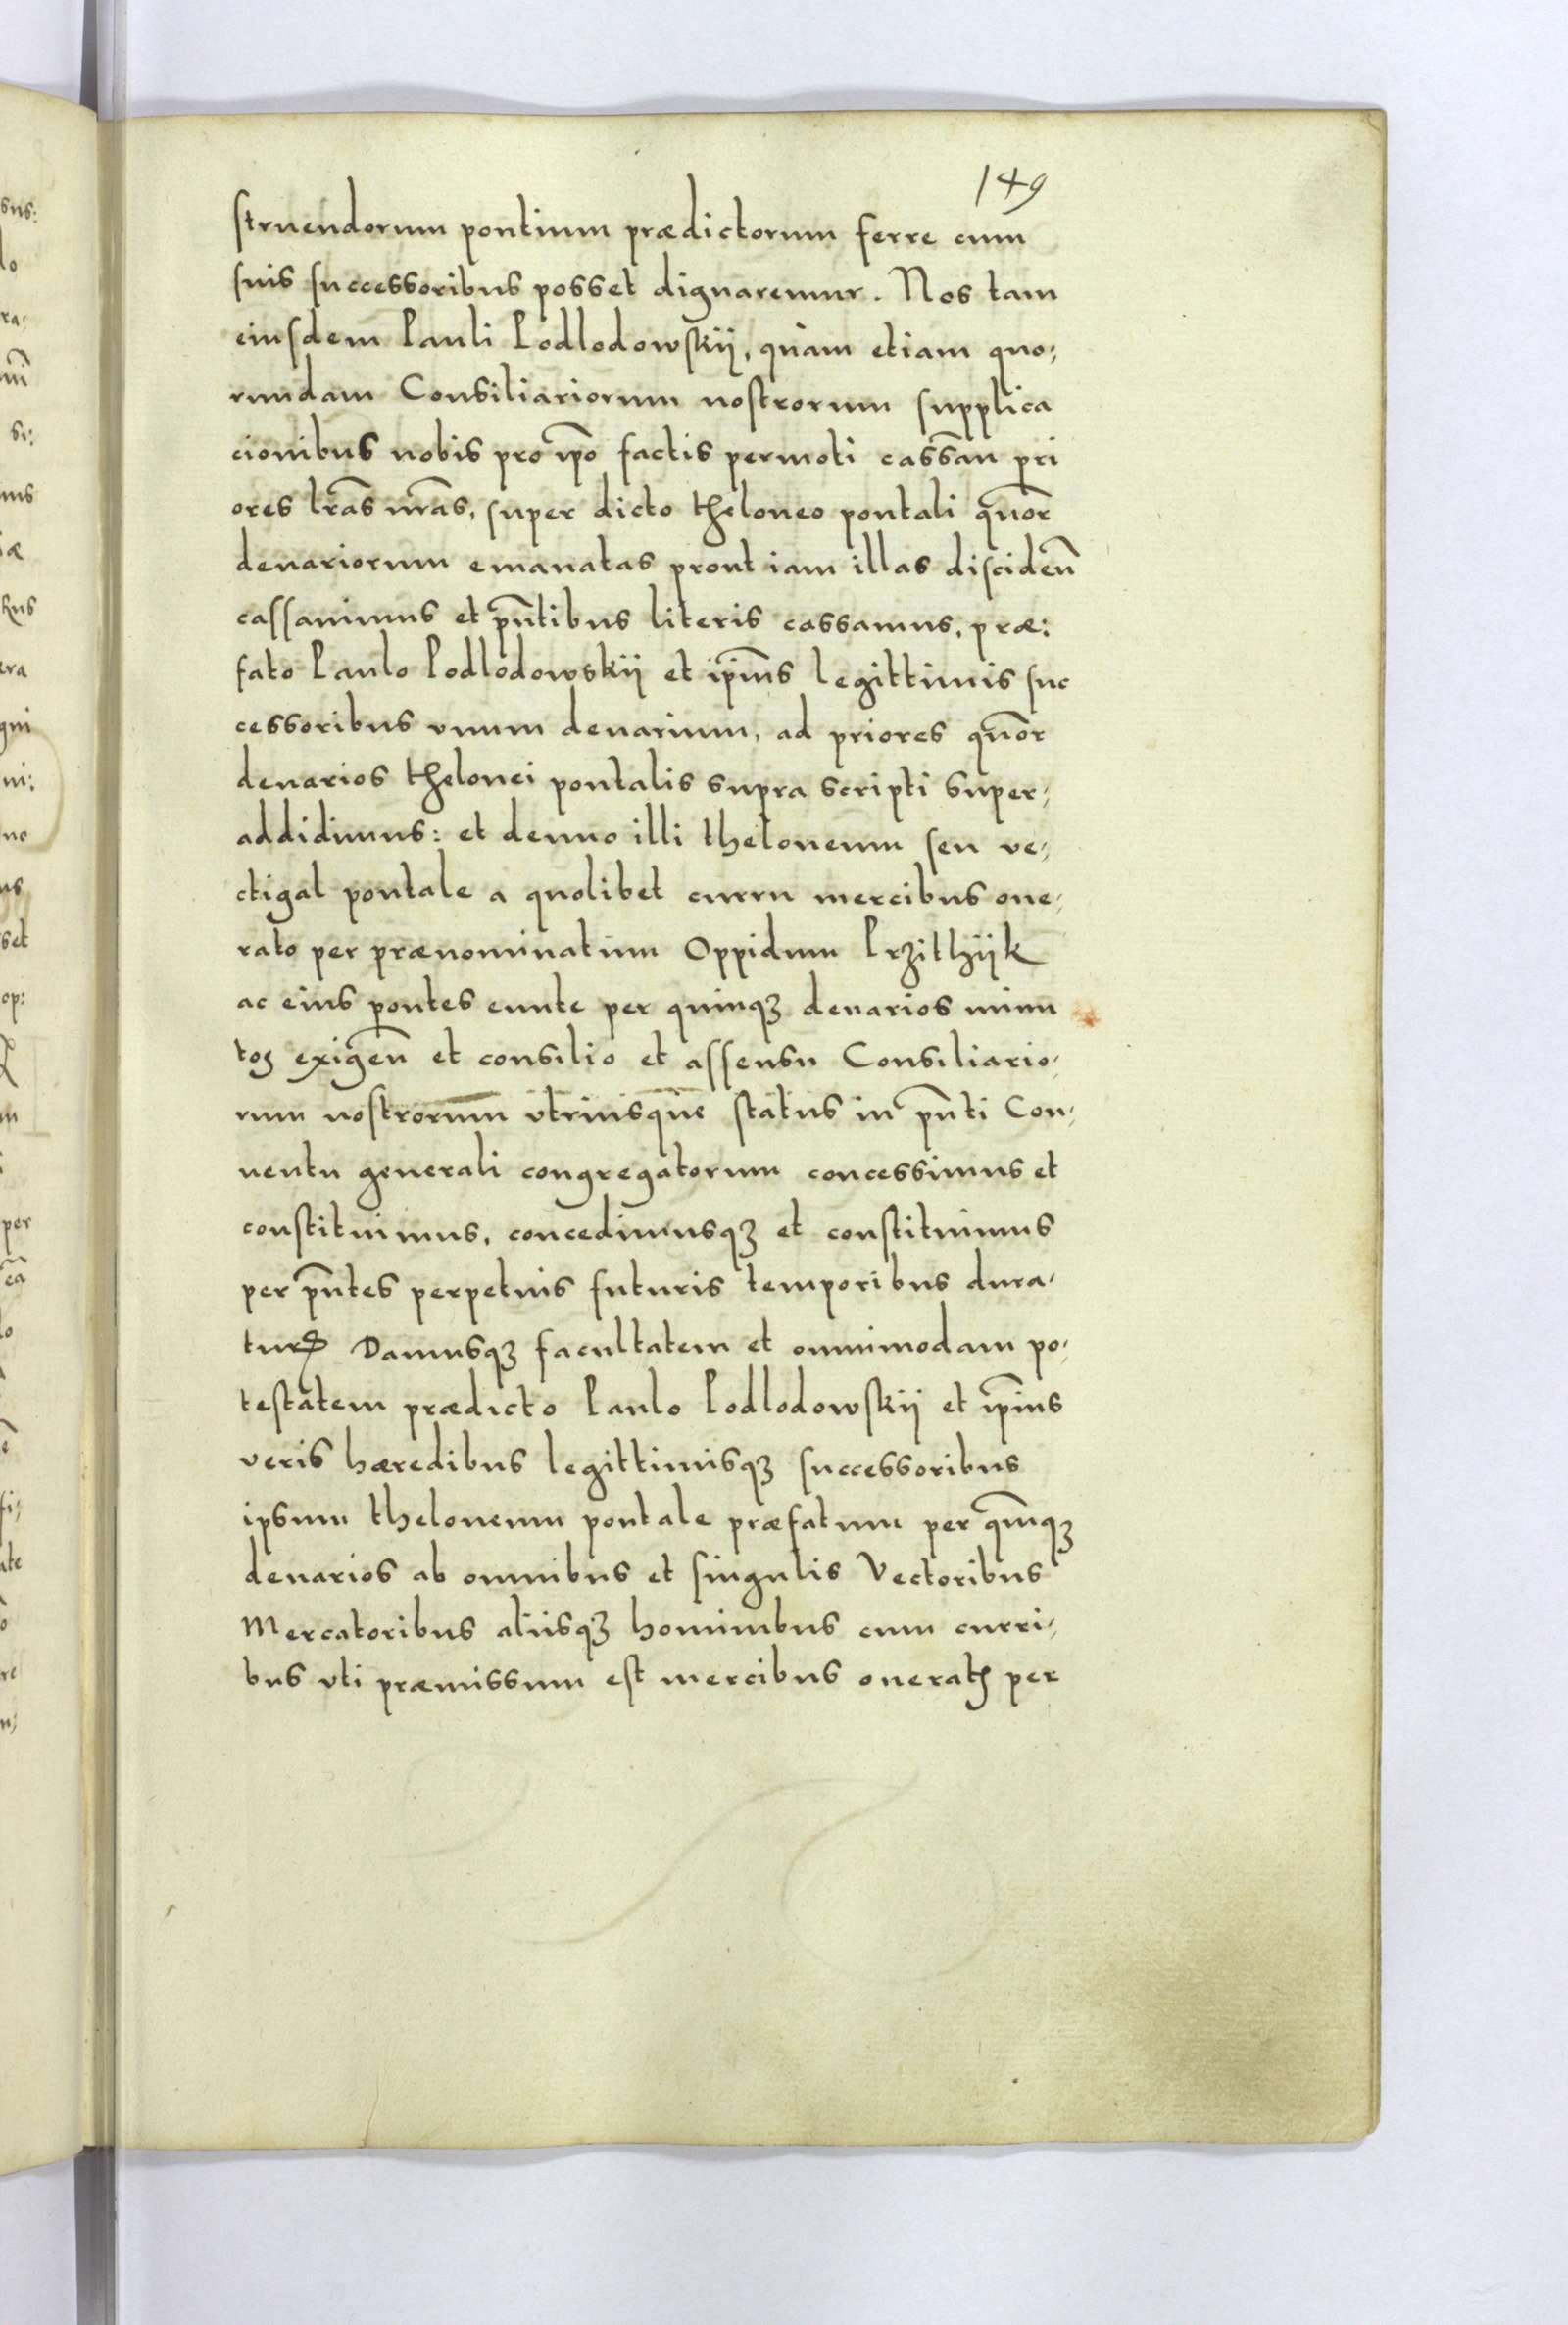 149
struendorum pontium prædictorum ferre cum
suis successoribus posset dignaremur. Nos tam
eiusdem Pauli Podlodowskij, quam etiam quo,
rundam Consiliariorum nostrorum supplica
cionibus nobis pro ip̄o factis permoti cassan̄ pri
ores lr̄as nr̄as, super dicto theloneo pontali quōr
denariorum emanatas prout iam illas discideñ
cassauimus et pn̄tibus literis cassamus, præ:
fato Paulo Podlodowskij et ip̄ius legittimis suc
cessoribus vnum denarium, ad priores quōr
denarios thelonei pontalis supra scripti super,
addidimus: et denuo illi theloneum seu ve,
ctigal pontale a quolibet curru mercibus one,
rato per prænominatum Oppidum Przithijk
ac eius pontes eunte per quinqꝫ denarios minu
tos exigen̄ et consilio et assensu Consiliario,
rum nostrorum vtriusque status in pn̄ti Con,
uentu generali congregatorum concessimus et
constituimus, concedimusqꝫ et constituimus
per pn̄tes perpetuis futuris temporibus dura,
turꝭ Damusqꝫ facultatem et omnimodam po,
testatem prædicto Paulo Podlodowskij et ip̄ius
veris hæredibus legittimisqꝫ successoribus
ipsum theloneum pontale præfatum per qūīqꝫ
denarios ab omnibus et singulis Vectoribus
Mercatoribus aliisqꝫ hominibus cum curri,
bus vti præmissum est mercibus oneratꝭ per